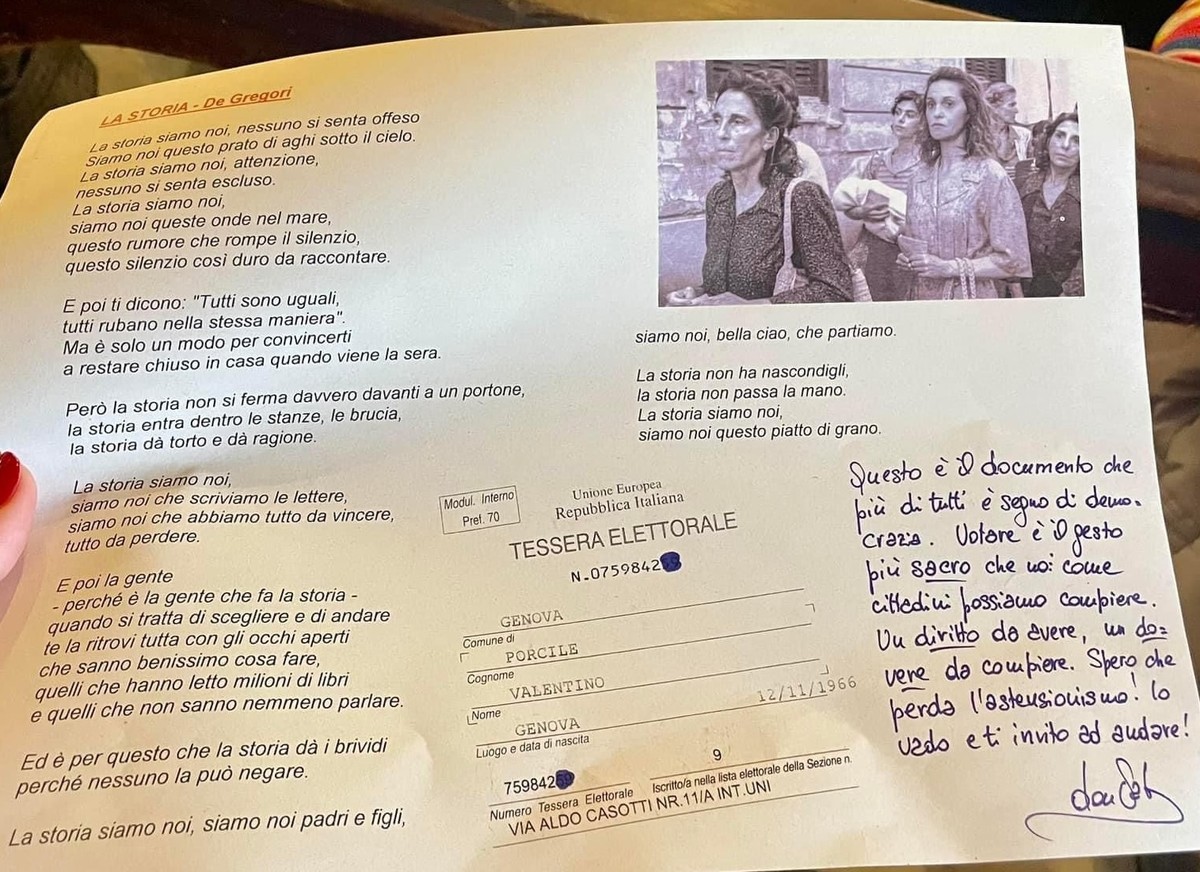 LA STORIA - De Gregori
La storia siamo noi, nessuno si senta offeso
Siamo noi questo prato di aghi sotto il cielo.
La storia siamo noi, attenzione,
nessuno si senta escluso.
La storia siamo noi,
siamo noi queste onde nel mare,
questo rumore che rompe il silenzio,
questo silenzio così duro da raccontare.
E poi ti dicono: "Tutti sono uguali,
tutti rubano nella stessa maniera".
Ma è solo un modo per convincerti
a restare chiuso in casa quando viene la sera.
Però la storia non si ferma davvero davanti a un portone,
la storia entra dentro le stanze, le brucia,
la storia dà torto e dà ragione.
La storia siamo noi,
siamo noi che scriviamo le lettere,
siamo noi che abbiamo tutto da vincere,
tutto da perdere.
E poi la gente
- perché è la gente che fa la storia -
quando si tratta di scegliere e di andare
te la ritrovi tutta con gli occhi aperti
che sanno benissimo cosa fare,
quelli che hanno letto milioni di libri
e quelli che non sanno nemmeno parlare.
Ed è per questo che la storia dà i brividi
perché nessuno la può negare.
La storia siamo noi, siamo noi padri e figli,
siamo noi, bella ciao, che partiamo.
La storia non ha nascondigli,
la storia non passa la mano.
La storia siamo noi,
siamo noi questo piatto di grano.
Modul. Interno
Pref. 70
Unione Europea
Repubblica Italiana
TESSERA ELETTORALE
N.0759842
GENOVA
Comune di
PORCILE
Cognome
VALENTINO
Nome
GENOVA 12/11/1966
Luogo e data di nascita
759842 9
Numero Tessera Elettorale Iscritto/a nella lista elettorale della Sezione n.
VIA ALDO CASOTTI NR.11/A INT.UNI
Questo è il documento che
più di tutti è segno di demo-
crazia. Votare è il gesto
più sacro che noi come
cittadini possiamo compiere.
Un diritto da avere, un do=
vere da compiere. Spero che
perda l'astensionismo! Io
vado e ti invito ad andare!
don